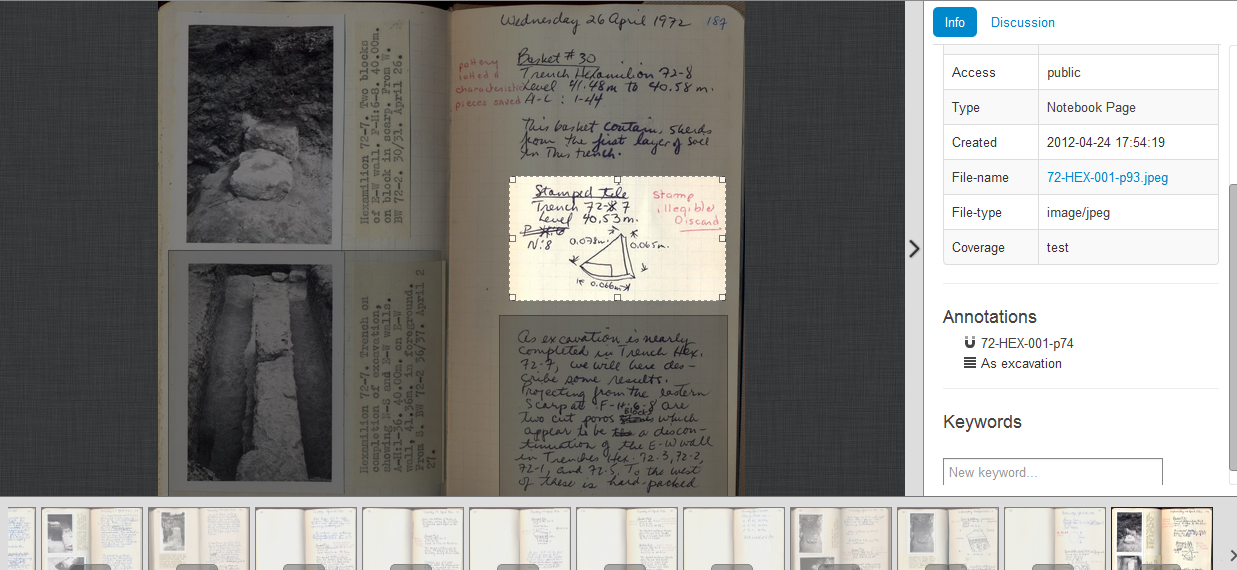 Hexamilion 72-7. Two blocks
of E-W wall. F-H:6-8. 40.00m.
on block in scarp. From W.
BW 72-2. 30/31. April 26.
Hexamilion 72-7. Trench on
completion of excavation,
showing N-S and E-W walls.
A-H:1-36. 40.00m. on E-W
wall, 41.36m. in foreground.
From S. BW 72-2 36/37. April 2
27.
Wednesday 26 April 1972 187
pottery
lotted &
characteristic
pieces saved
Basket # 30
Trench Hexamilion 72-8
Level 41.48m to 40.58m.
A-C : 1-44
This basket contains sherds
from the first layer of soil
in this trench.
Stamped tile
Trench 72-8 7
Level 40.53m.
N:8
Stamp
illegible
Discard
0.078m.
0.065m.
0.066m
As excavation is nearly
completed in Trench Hex.
72-7, we will here des-
cribe some results.
Projecting from the eastern
Scarp at F-H:6-8 are
two cut poros blocks which
appear to be a discon-
tinuation of the E-W wall
in Trenches Hex. 72-3, 72-2,
72-1, and 72-5. To the west
of these is hard-packed
Info
Discussion
Access public
Type Notebook Page
Created 2012-04-24 17:54:19
File-name 72-HEX-001-p93.jpeg
File-type image/jpeg
Coverage test
Annotations
72-HEX-001-p74
As excavation
Keywords
New keyword...